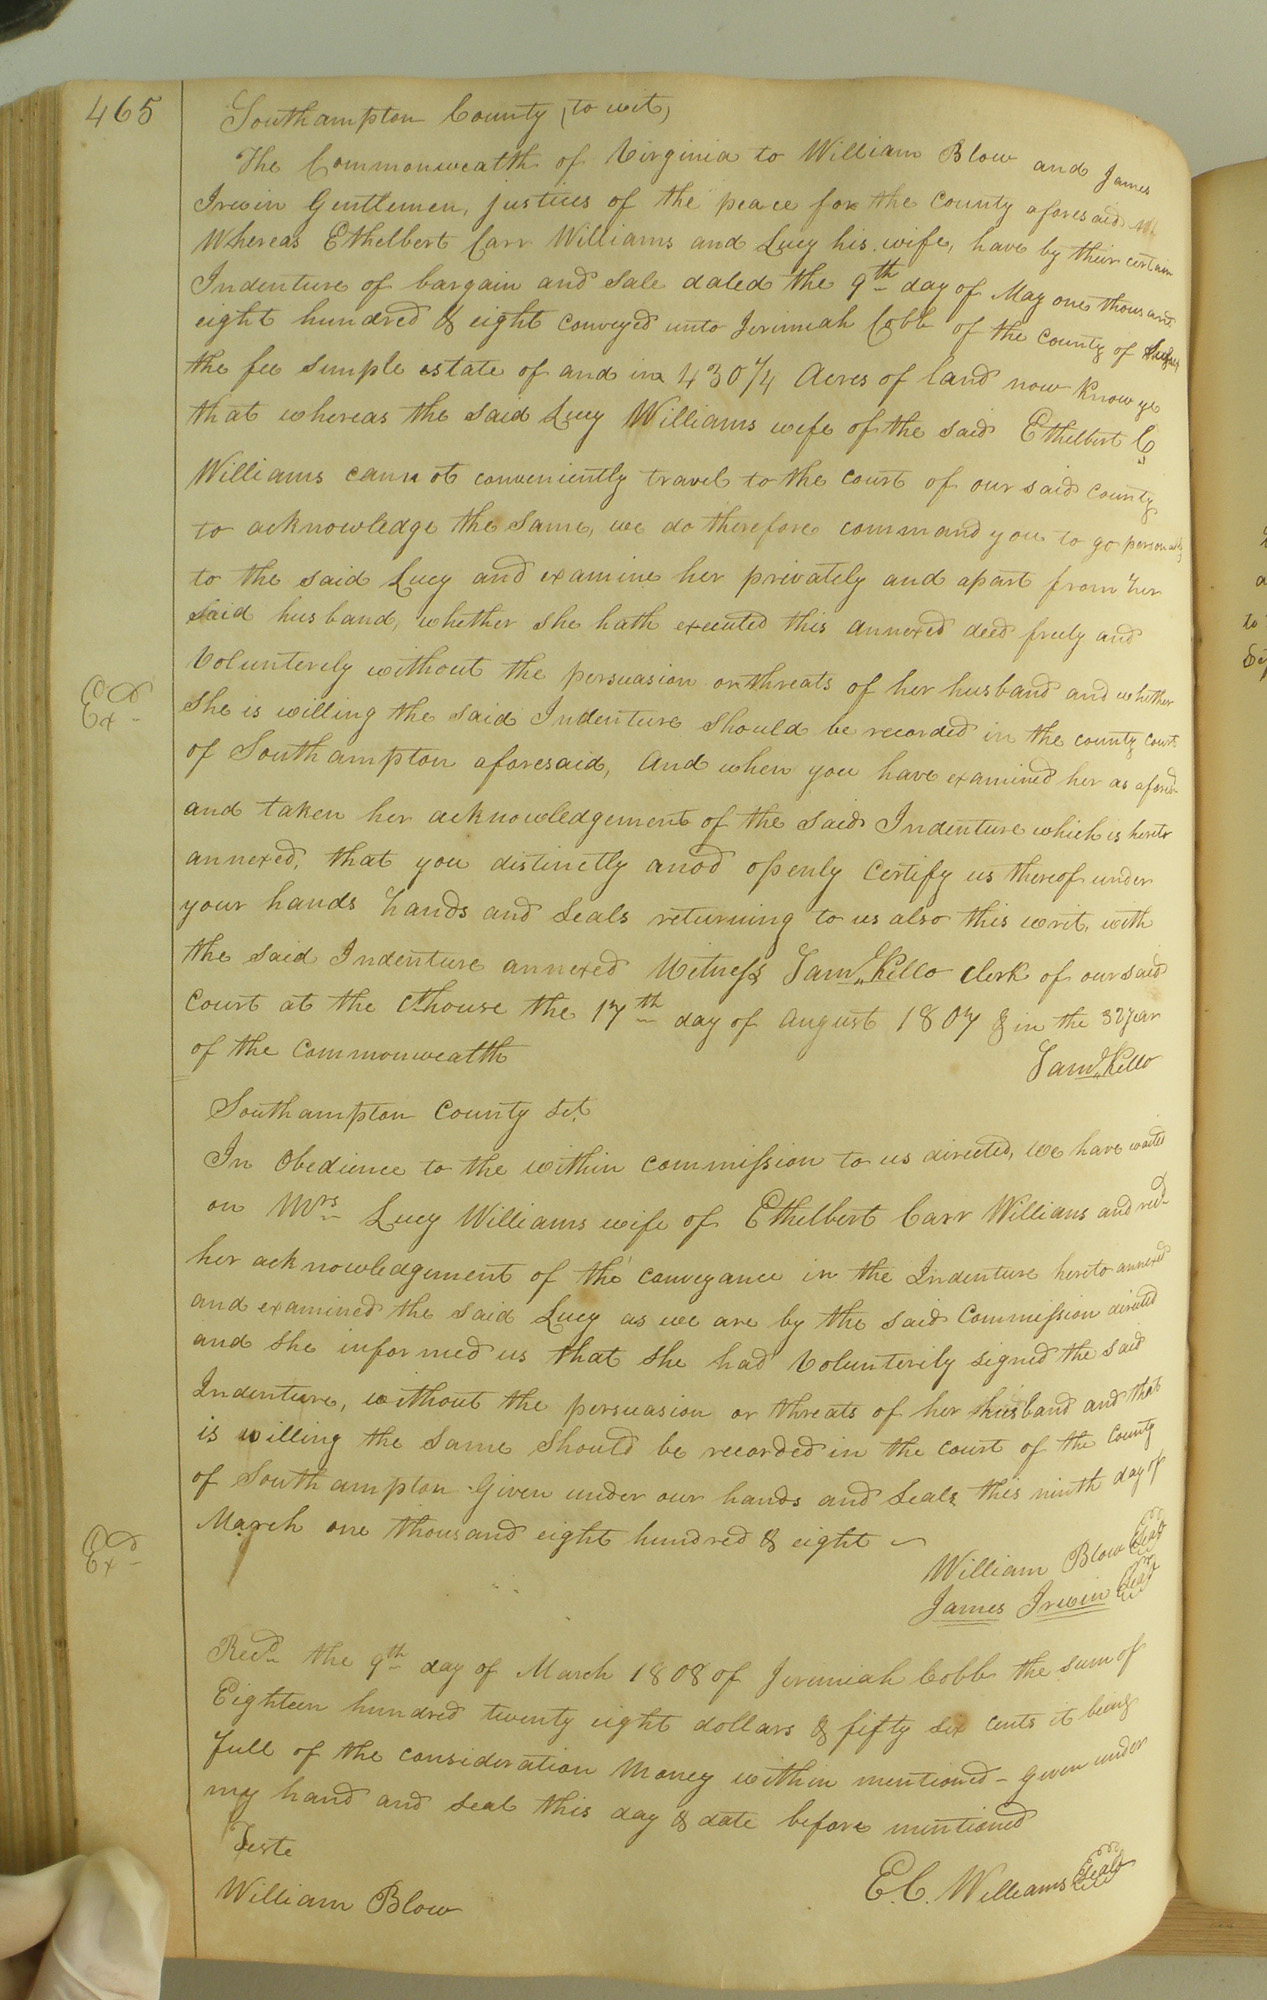 465
Southampton County, to wit,
The Commonwealth of Virginia to William Blow and James
Irwin Gentlemen, justices of the peace for the county aforesaid
Whereas Ethelbert Carr Williams and Lucy his wife, have by their certain
Indenture of bargain and Sale dated the 9th day of May one thousand
eight hundred & eight conveyed unto Jeremiah Cobb of the County of
the fee simple estate of and in 430 1/4 Acres of land now know ye
that whereas the said Lucy Williams wife of the said Ethelbert C
Williams cannot conveniently travel to the court of our said county
to acknowledge the same, we do therefore command you to go personally
to the said Lucy and examine her privately and apart from her
said husband, whether she hath executed this annexed deed freely and
Volunterely without the persuasion or threats of her husband and whether
Exd
Ex-
she is willing the said Indenture should be recorded in the county court
of Southampton aforesaid, And when you have examined her as aforesd
and taken her acknowledgement of the said Indenture which is hereto
annexed, that you distinctly anod openly Certify us thereof under
your hands hands and seals returning to us also this writ, with
the said Indenture annexed Witness Saml Kello Clerk of our said
Court at the Cthouse the 17th day of August 1807 & in the 32 year
of the Commonwealth
Saml Kello
Southampton County Sct.
In Obedience to the within commission to us directed, we have waited
on Mrs Lucy Williams wife of Ethelbert Carr Williams and recd
her acknowledgement of the conveyance in the Indenture hereto annexed
and examined the said Lucy as we are by the said Commission directed
and she informed us that she had Volunterily signed the said
Indenture, without the persuasion or threats of her husband and that
is willing the same should be recorded in the court of the County
of Southampton Given under our hands and seals this ninth day of
March one thousand eight hundred & eight
Ex-
William Blow Seal
James Irwin Seal
Recd the 9th day of March 1808 of Jeremiah Cobb the sum of
Eighteen hundred twenty eight dollars & fifty six cents it being
full of the consideration Money within mentioned - given under
my hand and seal this day & date before mentioned
Teste
William Blow
E. C. Williams Seal